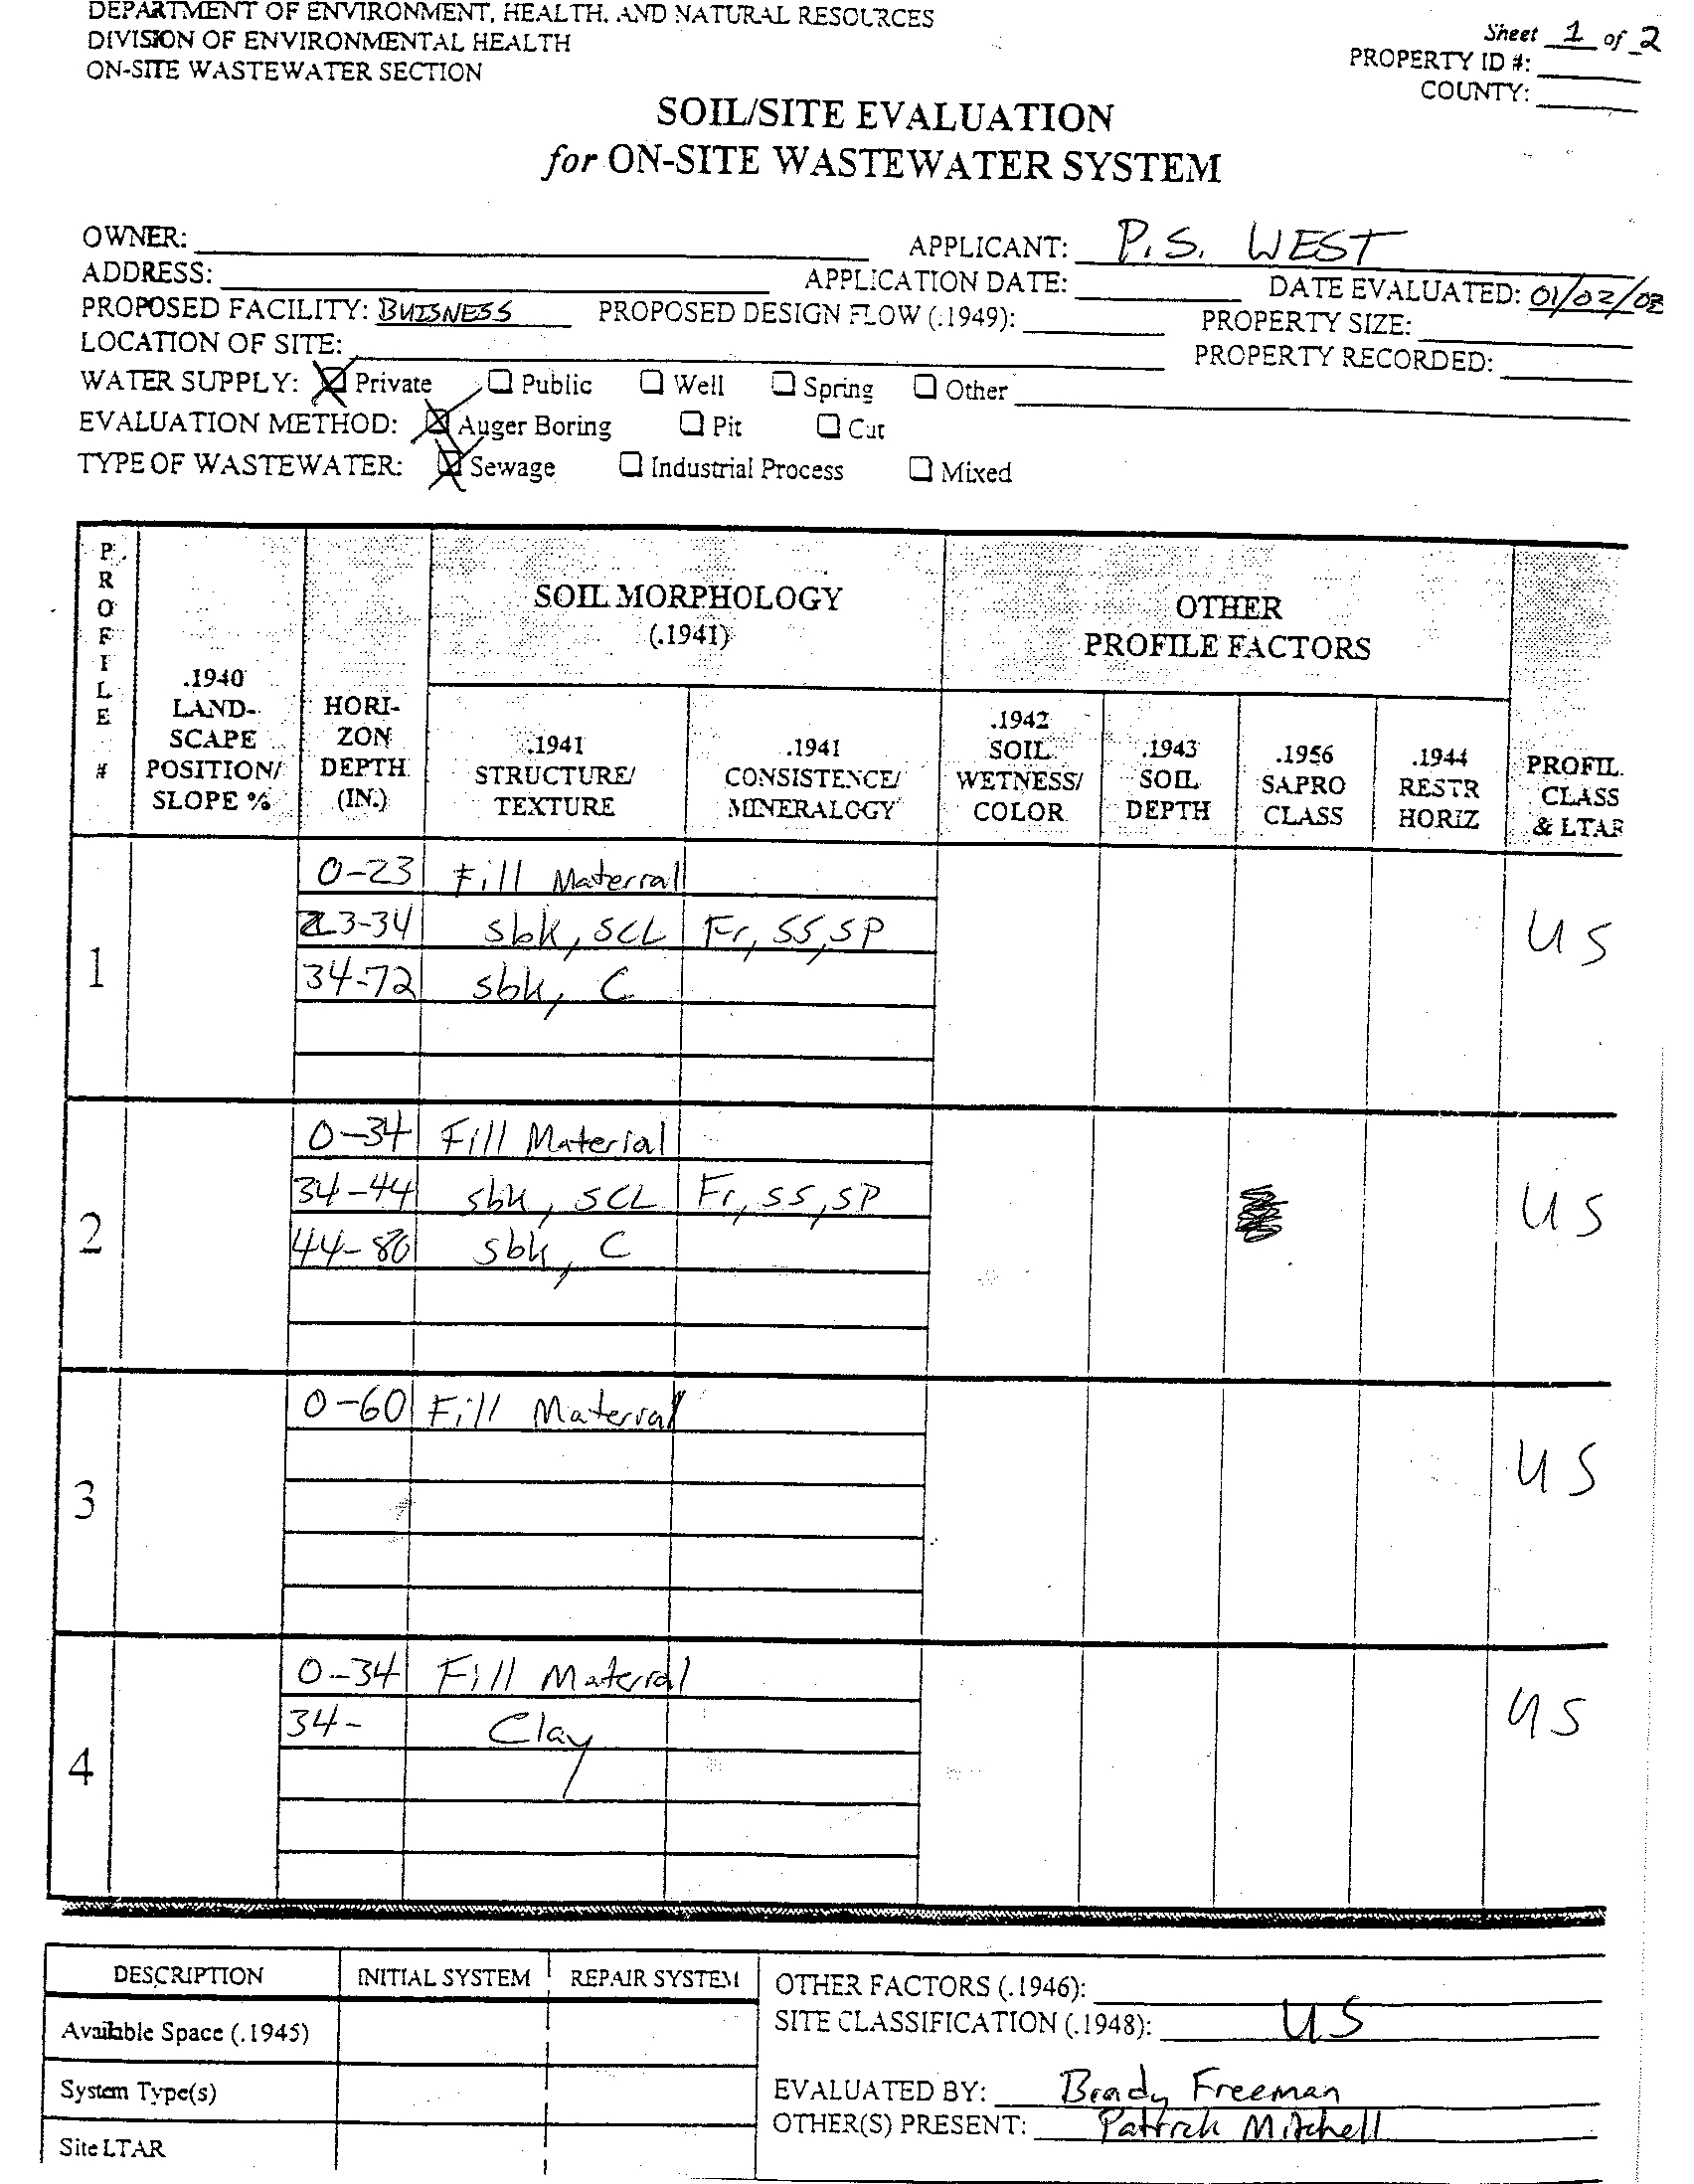 DEPARTMENT OF ENVIRONMENT, HEALTH, AND NATURAL RESOURCES
DIVISION OF ENVIRONMENTAL HEALTH
ON-SITE WASTEWATER SECTION
Sheet 1 of 2
PROPERTY ID #:
COUNTY:
SOIL/SITE EVALUATION
for ON-SITE WASTEWATER SYSTEM
OWNER: APPLICANT: P.S. WEST
ADDRESS: APPLICATION DATE: DATE EVALUATED: 01/02/02
PROPOSED FACILITY: BUISNESS PROPOSED DESIGN FLOW (.1949): PROPERTY SIZE:
LOCATION OF SITE: PROPERTY RECORDED:
WATER SUPPLY: Private Public Well Spring Other
EVALUATION METHOD: Auger Boring Pit Cut
TYPE OF WASTEWATER: Sewage Industrial Process Mixed
PROFILE #
.1940 LAND-SCAPE POSITION/ SLOPE %
HORI-ZON DEPTH (IN.)
SOIL MORPHOLOGY (.1941)
.1941 STRUCTURE/ TEXTURE
.1941 CONSISTENCE/ MINERALOGY
OTHER PROFILE FACTORS
.1942 SOIL WETNESS/ COLOR
.1943 SOIL DEPTH
.1956 SAPRO CLASS
.1944 RESTR HORIZ
PROFIL. CLASS & LTAR
1
0-23 Fill Material
23-34 sbk, SCL Fr, SS, SP US
34-72 sbk, C
2
0-34 Fill Material
34-44 sbk, SCL Fr, SS, SP US
44-80 sbk, C
3
0-60 Fill Material
US
4
0-34 Fill Material
34- Clay US
DESCRIPTION INITIAL SYSTEM REPAIR SYSTEM
Available Space (.1945)
System Type(s)
Site LTAR
OTHER FACTORS (.1946):
SITE CLASSIFICATION (.1948): US
EVALUATED BY: Brady Freeman
OTHER(S) PRESENT: Patrick Mitchell